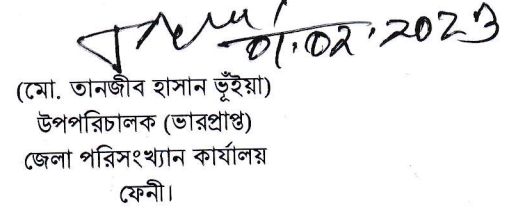 01.02.2023
(মো. তানজীব হাসান ভূঁইয়া)
উপপরিচালক (ভারপ্রাপ্ত)
জেলা পরিসংখ্যান কার্যালয়
ফেনী।